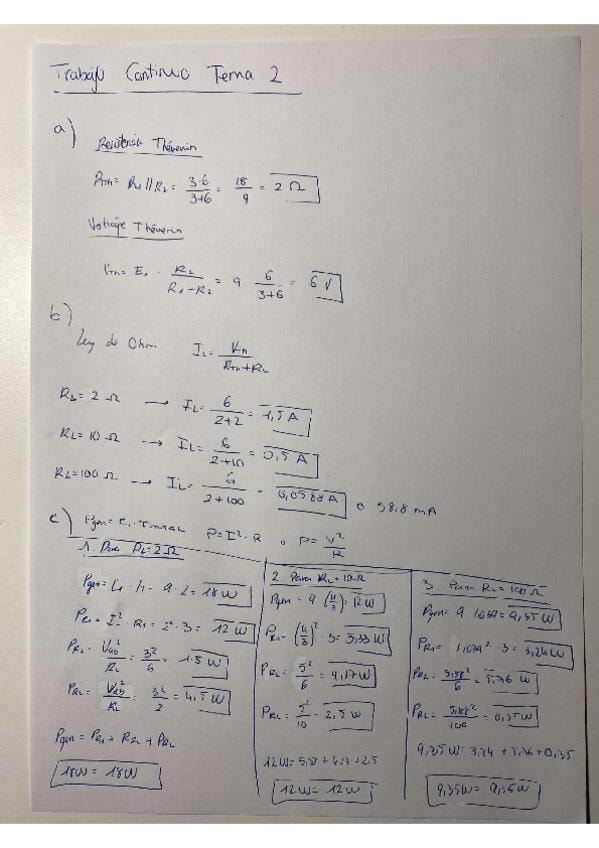 Trabajo Continuo Tema 2
a) Resistencia Thévenin
RTh = R1 // R2 = 3·6 / 3+6 = 18 / 9 = 2 Ω
Voltaje Thévenin
VTh = E1 · R2 / R1-R2 = 9 6 / 3+6 = 6 V
b)
Ley de Ohm IL = VTh / RTh+RL
RL = 2 Ω → IL = 6 / 2+2 = 1,5 A
RL = 10 Ω → IL = 6 / 2+10 = 0,5 A
RL = 100 Ω → IL = 6 / 2+100 = 0,0588 A o 58.8 mA
c) Pgen = E1 · P = I² · R o P = V² / R
1. Para RL = 2 Ω
Pgen = 9 · 2 = 18 W
PR1 = I² · R1 = 2² · 3 = 12 W
PR2 = Vab² / RL = 3² / 6 = 1.5 W
PRL = Vab² / RL = 3² / 2 = 4,5 W
Pgen = PR1 + PR2 + PRL
18W = 18W
2. Para RL = 10 Ω
Pgen = 9 (4/3) = 12 W
PR1 = (4/3)² · 3 = 5,33 W
PR2 = 5² / 6 = 4,17 W
PRL = 5² / 10 = 2,5 W
12W = 5,33 + 4,17 + 2.5
12 W = 12 W
3. Para RL = 100 Ω
Pgen = 9 · 1,039 = 9,35 W
PR1 = 1,039² · 3 = 3,24 W
PR2 = 5,88² / 6 = 5,76 W
PRL = 5,88² / 100 = 0,35 W
9,35 W = 3,24 + 5,76 + 0,35
9,35 W = 9,35 W